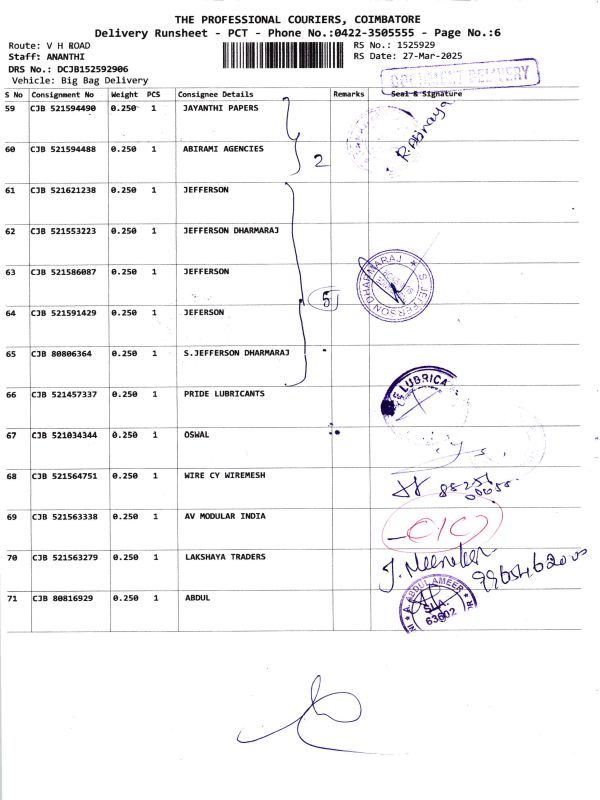 THE PROFESSIONAL COURIERS, COIMBATORE
Delivery Runsheet - PCT - Phone No.:0422-3505555 - Page No.:6
Route: V H ROAD
RS No.: 1525929
Staff: ANANTHI
RS Date: 27-Mar-2025
DRS No.: DCJB152592906
Vehicle: Big Bag Delivery
DOCUMENT DELIVERY
S No Consignment No Weight PCS Consignee Details Remarks Seal & Signature
59 CJB 521594490 0.250 1 JAYANTHI PAPERS
R. Abinaya
60 CJB 521594488 0.250 1 ABIRAMI AGENCIES 2
61 CJB 521621238 0.250 1 JEFFERSON
62 CJB 521553223 0.250 1 JEFFERSON DHARMARAJ
63 CJB 521586087 0.250 1 JEFFERSON
5
S. JEFFERSON DHARMARAJ
64 CJB 521591429 0.250 1 JEFERSON
65 CJB 80806364 0.250 1 S.JEFFERSON DHARMARAJ
66 CJB 521457337 0.250 1 PRIDE LUBRICANTS
LUBRICA
67 CJB 521034344 0.250 1 OSWAL
68 CJB 521564751 0.250 1 WIRE CY WIREMESH
69 CJB 521563338 0.250 1 AV MODULAR INDIA
70 CJB 521563279 0.250 1 LAKSHAYA TRADERS
71 CJB 80816929 0.250 1 ABDUL
A. ABDUL AMEER